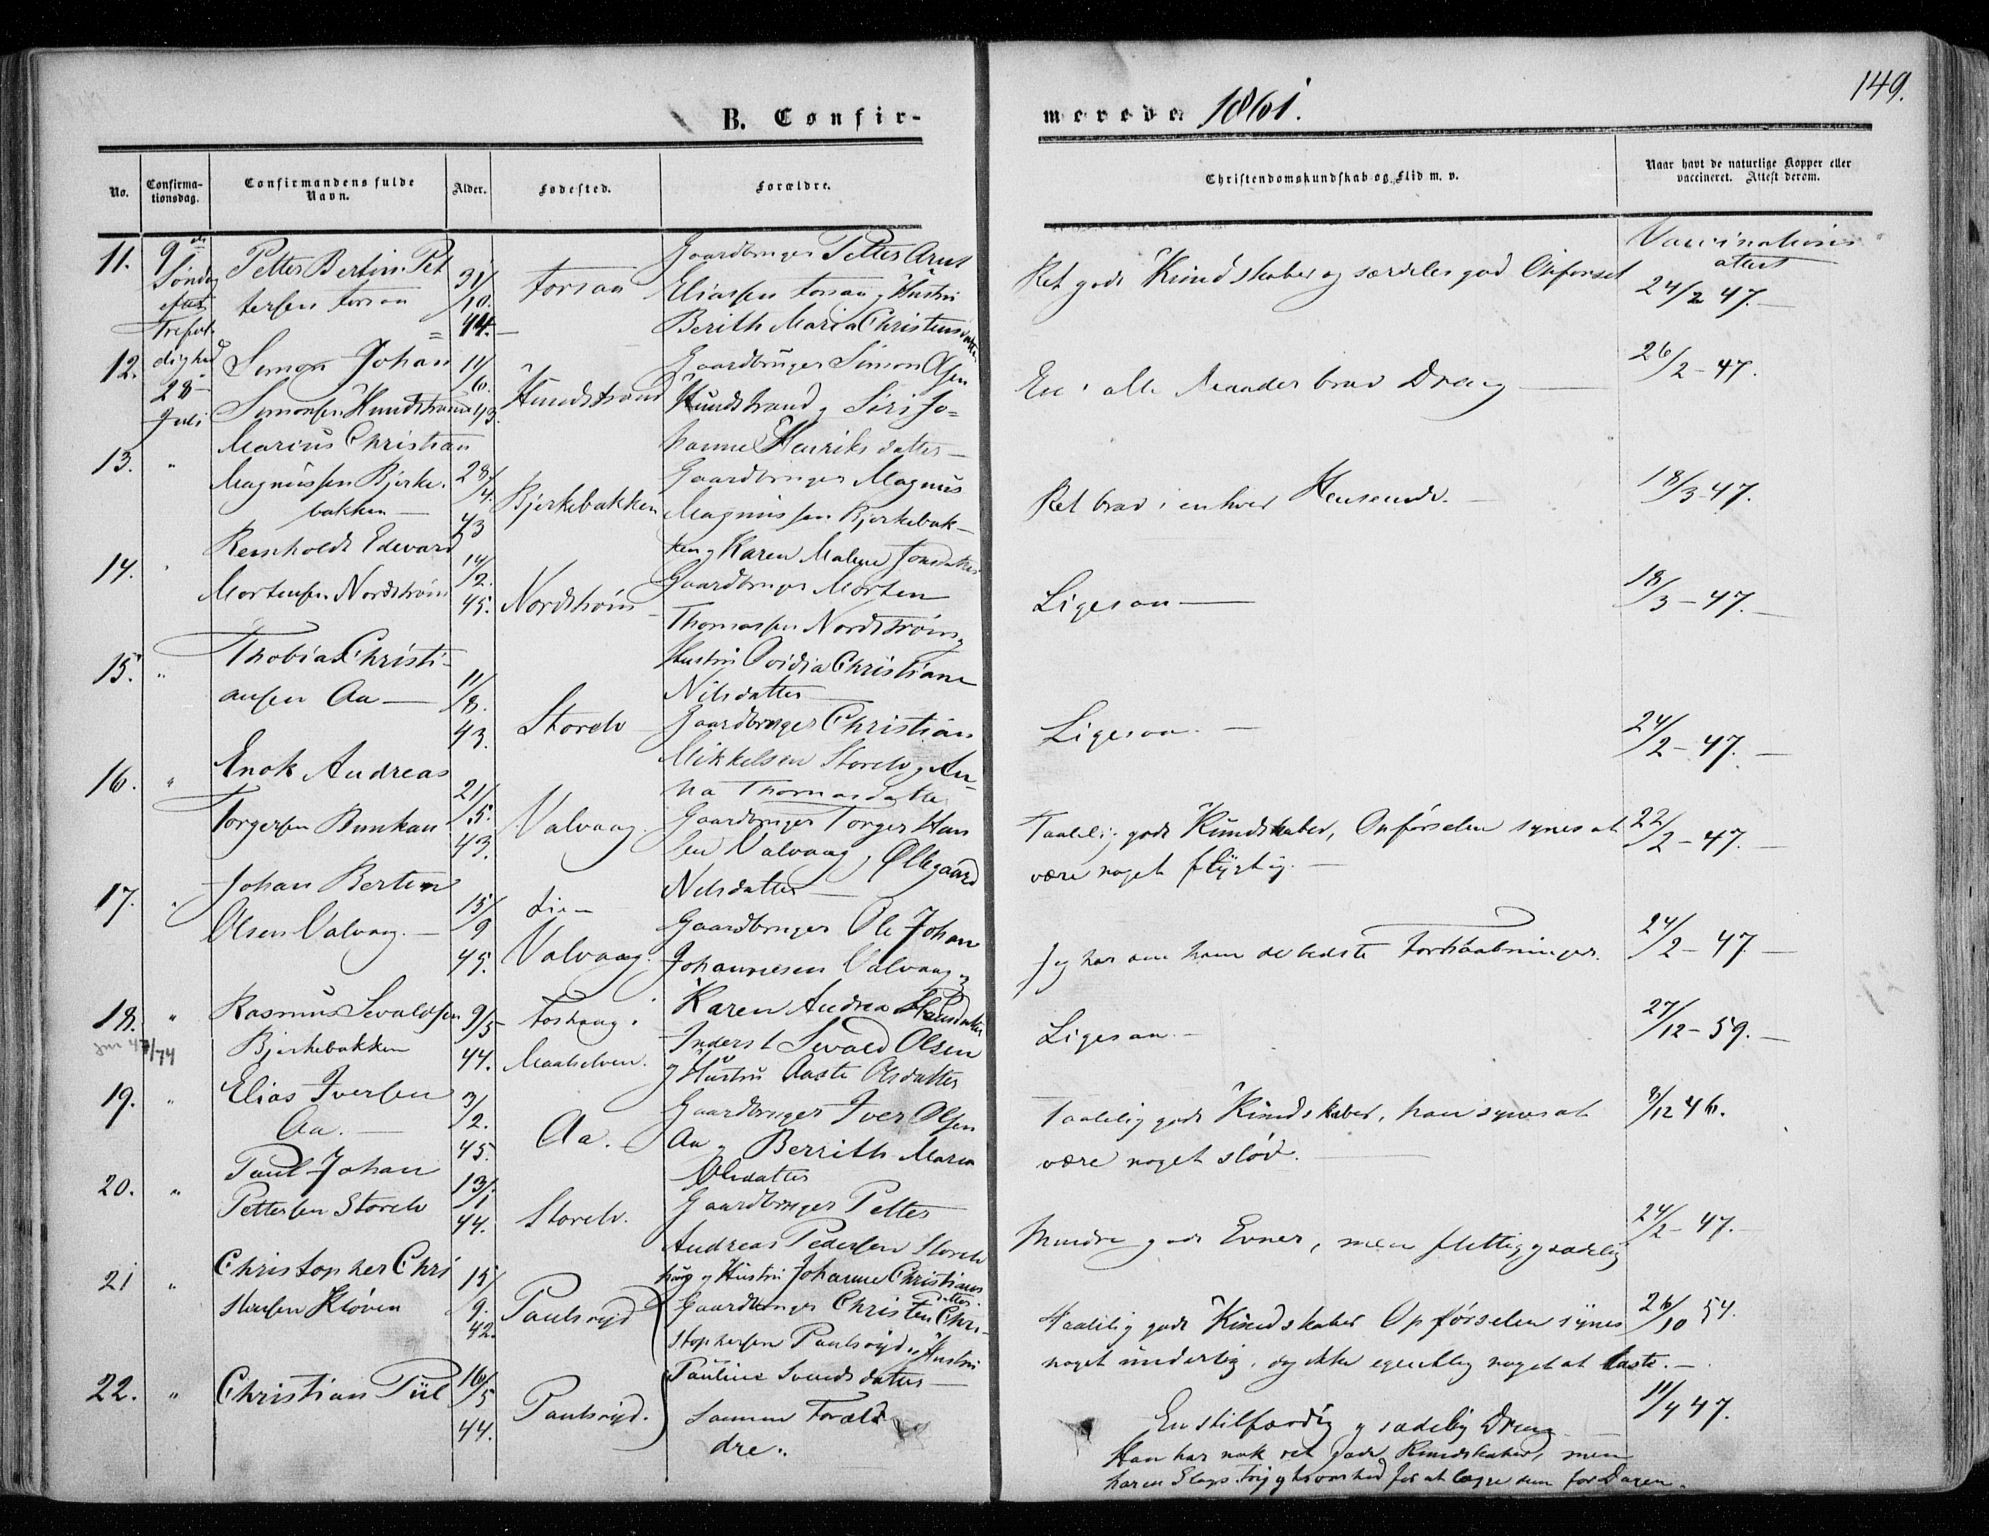 149.
B. Confir-
merede 1861.
No.
Confirma-
tionsdag.
Confirmandens fulde
Navn.
Alder.
Fødested.
Forældre.
Christendomskundskab og Flid m. v.
Naar havt de naturlige Kopper eller
vaccineret. Attest derom.
11.
9de
Søndag
Trefol-
dighed
28
Juli
Petter Bertin Pet
tersen Forsaa
31/
10.
44.
Forsaa
Gaardbruger Petter Arnt
Eliassen Forsaa og Hustru
Berith Maria Christensdatter
Ret gode Kundskaber og særdeles god Opførsel
Vaccinations
attest
24/2 47.
12.
Simon Johan
Simonsen Hundstrand
11/
6.
43.
Hundstrand
Gaardbruger Simon Olsen
Hundstrand og Siri Jo-
hanne Henriksdatter
En i alle Maader brav Dreng
26/2-47.
13.
"
Marius Christian
Magnussen Bjerke-
bakken
28/
4.
43
Bjerkebakken
Gaardbruger Magnus
Magnussen Bjerkebak-
ken og Karen Malene Jonsdatter
Ret brav i enhver Henseende.
18/3-47.
14.
Reinholdt Edevard
Mortensen Nordstrøm
14/
2.
45.
Nordstrøm
Gaardbruger Morten
Thomassen Nordstrøm og
Hustru Ovidia Christiane
Nilsdatter
Ligesaa
18/3-47.
15.
"
Thobias Christi-
ansen Aa
11/
8.
43.
Storelv
Gaardbruger Christian
Mikkelsen Storelv og An-
na Thomasdatter
Ligesaa.
24/2-47.
16.
"
Enok Andreas
Torgersen Bunkan
21/
5.
43.
Valvaag.
Gaardbruger Torger Han
sen Valvaag og Ollegaard
Nilsdatter
Taalelig gode Kundskaber, Opførselen synes at
være noget flygtig.
22/2-47.
17.
Johan Bertin
Olsen Valvaag.
15/
9
45.
Valvaag.
Gaardbruger Ole Johan
Johannesen Valvaag og
Karen Andrea Hansdatter
Jeg har om ham de bedste Forhaabninger.
24/2-47.
18.
"
Rasmus Sevaldsen
Bjerkebakken
9/5
44.
Maalselven.
Inderst Sevald Olsen
og Hustru Aaste Olsdatter
Ligesaa
27/12-59.
19.
"
Elias Iversen
Aa.
3/
2.
45.
Aa.
Gaardbruger Iver Olsen
Aa og Berrith Maria
Olsdatter
Taalelig gode Kundskaber, han synes at
være noget sløv.
8/12 46.
20.
"
Paul Johan
Pettersen Storelv
13/
1
44.
Storelv.
Gaardbruger Petter
Andreas Pedersen Storelv
og Hustru Johanne Christians
datter.
Mindre gode Evner, men flittig og sædelig
24/2-47.
21
"
Christopher Chri
stensen Kløven
15/
9.
42.
Paulsryd
Gaardbruger Christen Chri-
stophersen Paulsryd og Hustru
Pauline Svendsdatter
Taalelig gode Kundskaber Opførselen synes
noget underlig, dog ikke egentlig noget at laste.
26/10 54.
22.
"
Christian Tiil
16/
5
44.
Paulsryd.
Samme Foræl
dre.
En stilfærdig og sædelig Dreng
Han har nok ret gode Kundskaber, men
har en Slags Frygtsomhed for at lægge dem for Dagen.
11/4 47.